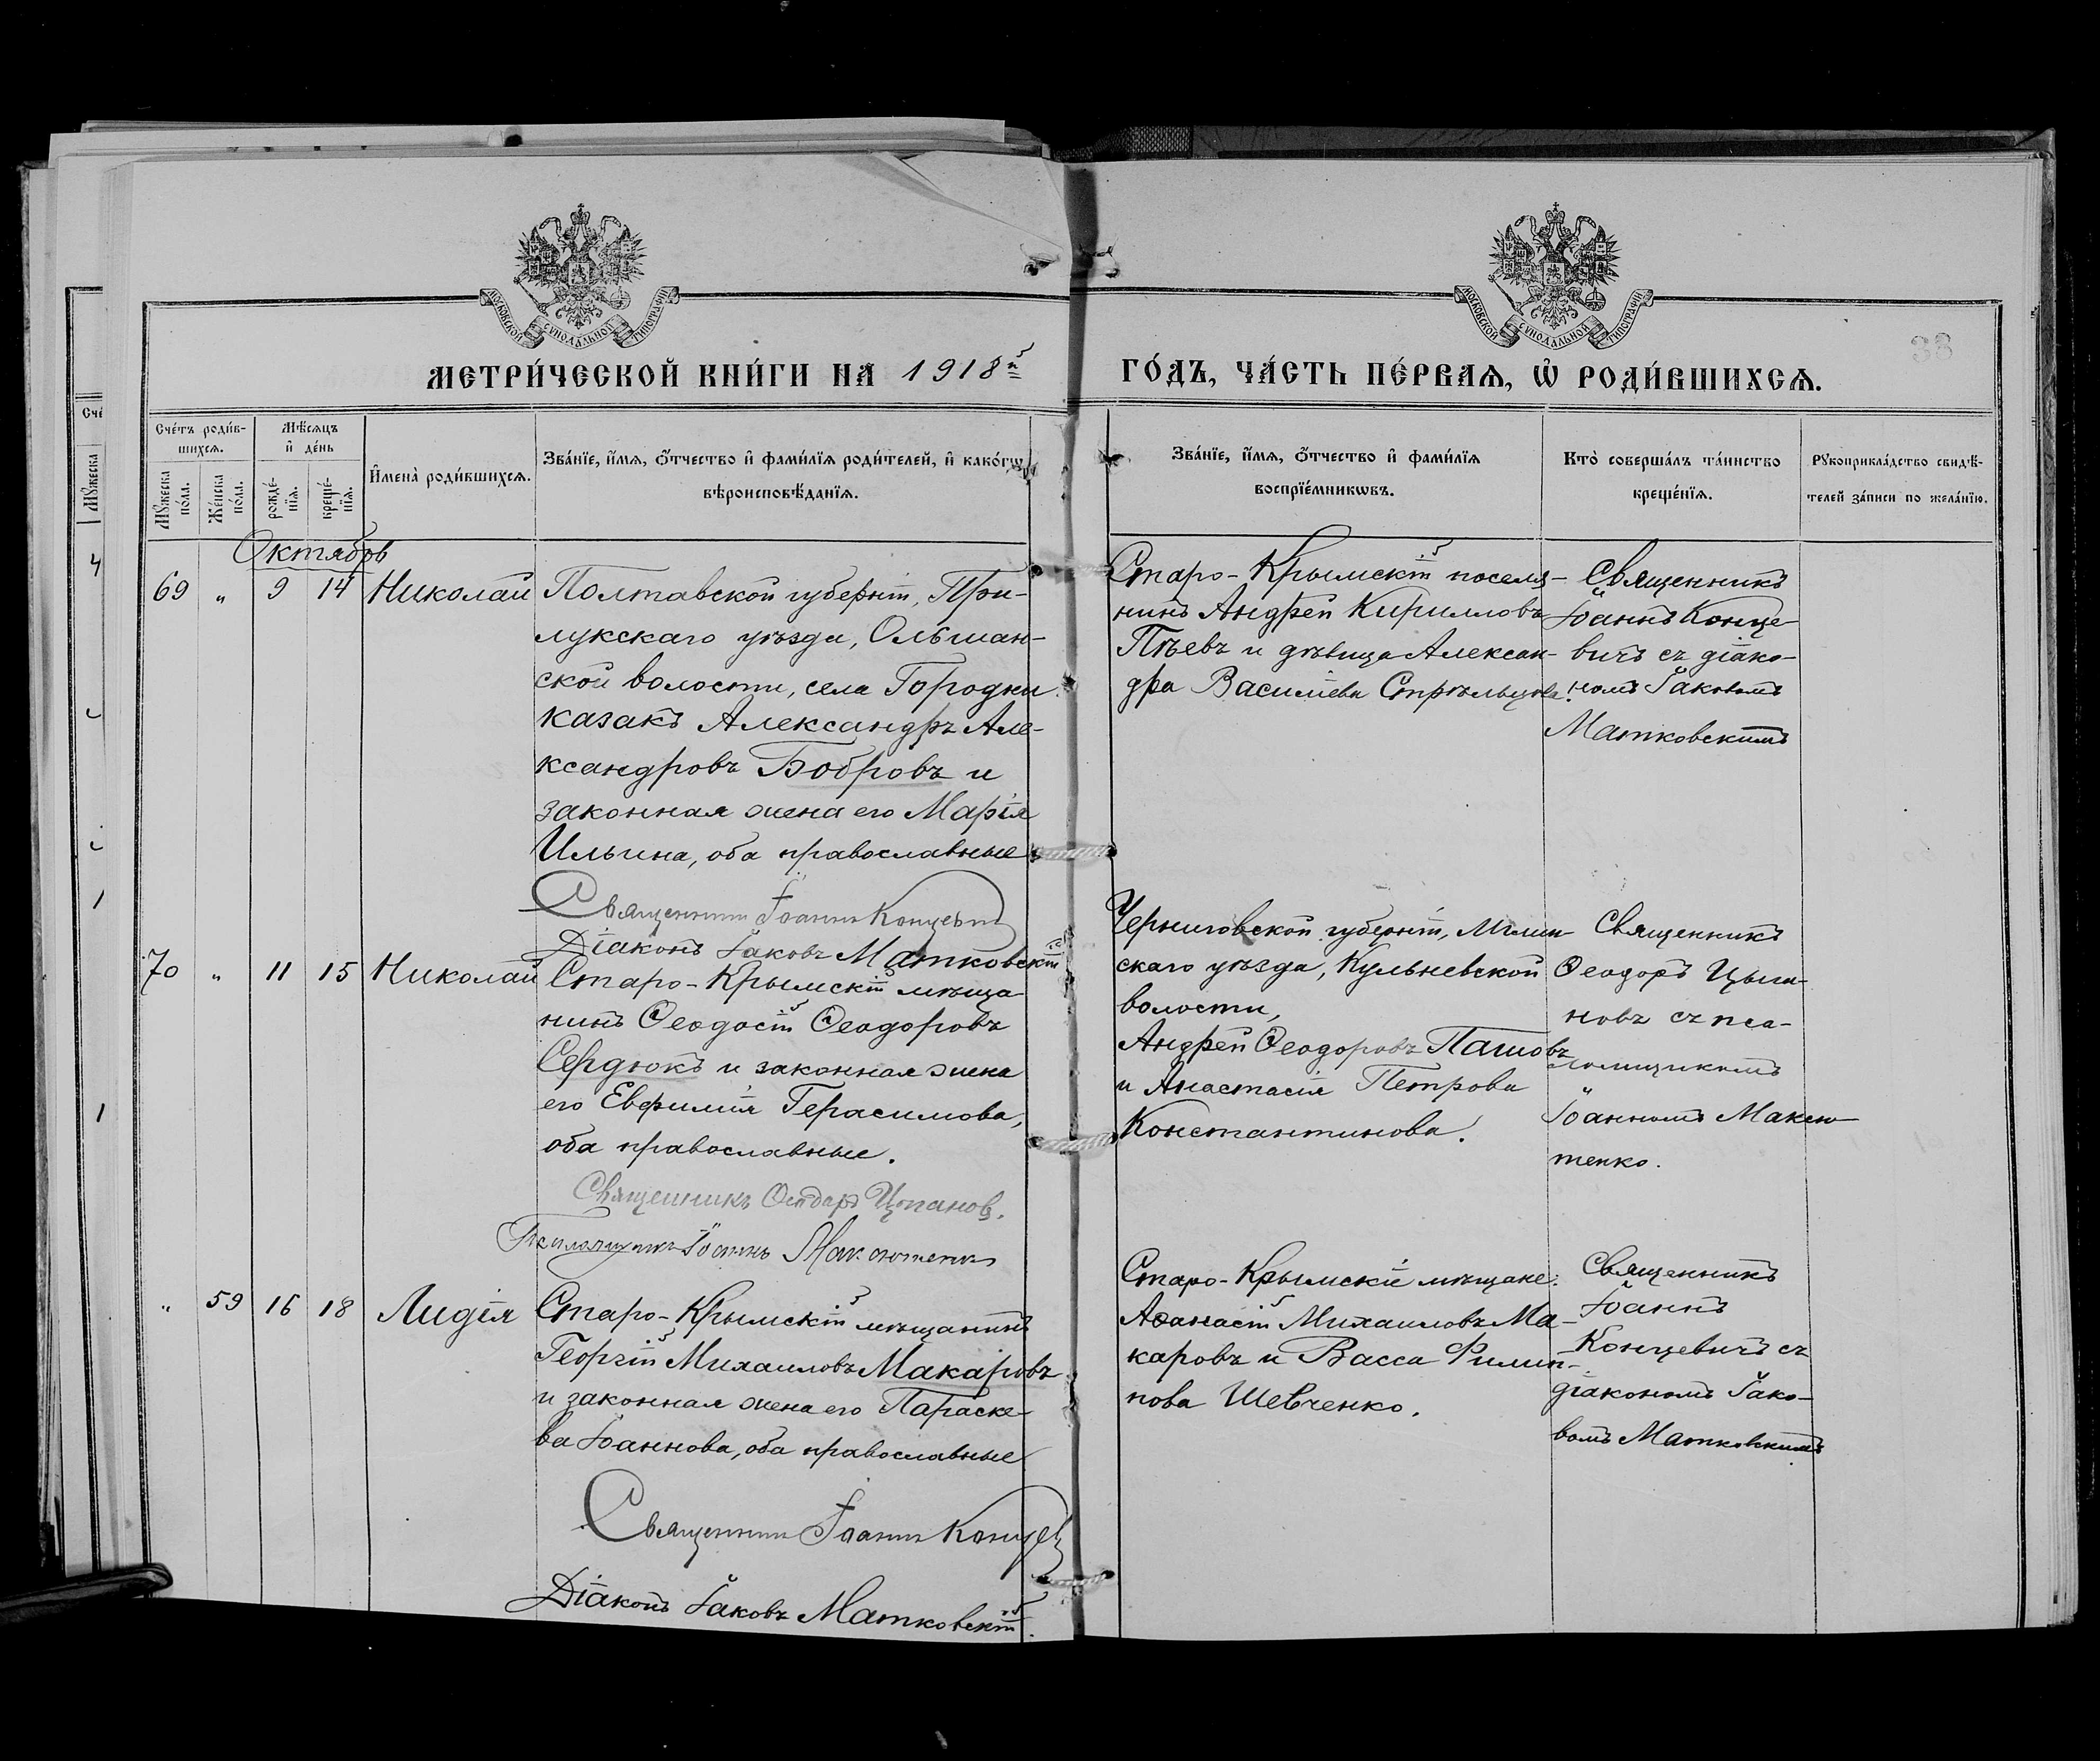 МОСКОВСКОЙ СѴНОДАЛЬНОЙ ТИПОГРАФІИ
МОСКОВСКОЙ СѴНОДАЛЬНОЙ ТИПОГРАФІИ
38
МЕТРИ́ЧЕСКОЙ КНИ́ГИ НА 1918й
ГО́ДЪ, ЧА́СТЬ ПЕ́РВАѦ, Ѽ РОДИ́ВШИХСѦ.
Сче́тъ роди́в-
шихсѧ.
Мѣ́сѧцъ
и҆ де́нь
Мꙋ́жеска
по́ла.
Же́нска
по́ла.
рожде́-
нїѧ.
креще́-
нїѧ.
И҆мена̀ роди́вшихсѧ.
Зва́нїе, и҆́мѧ, ѻ҆́тчество и҆ фами́лїѧ роди́телей, и҆ како́гѡ
вѣроисповѣ́данїѧ.
Зва́нїе, и҆́мѧ, ѻ҆́тчество и҆ фами́лїѧ
воспрїе́мникѡвъ.
Кто̀ соверша́лъ та́инство
креще́нїѧ.
Рꙋкоприкла́дство свидѣ́-
телей за́писи по жела́нїю.
Октябрь
69 " 9 14 Николай
Полтавской губерніи, При-
лукскаго уѣзда, Ольшан-
ской волости, села Городни
казакъ Александръ Але-
ксандровъ Бобровъ и
законная жена его Марія
Ильина, оба православные
Священникъ Іоаннъ Концевичъ
Діаконъ Іаковъ Матковскій
Старо-Крымскій поселя-
нинъ Андрей Кирилловъ
Пѣевъ и дѣвица Алексан-
дра Василіева Стрѣльцова.
Священникъ
Іоаннъ Конце-
вичъ съ діако-
номъ Іаковомъ
Матковскимъ
70 " 11 15 Николай
Старо-Крымскій мѣща-
нинъ Ѳеодосій Ѳеодоровъ
Сердюкъ и законная жена
его Евфимія Герасимова,
оба православные.
Священникъ Ѳеодоръ Цыгановъ.
Псаломщикъ Іоаннъ Максютенко
Черниговской губерніи, Мглин-
скаго уѣзда, Кульневской
волости,
Андрей Ѳеодоровъ Пашовъ
и Анастасія Петрова
Константинова.
Священникъ
Ѳеодоръ Цыга-
новъ съ пса-
ломщикомъ
Іоанномъ Максю-
тенко.
" 59 16 18 Лидія
Старо-Крымскій мѣщанинъ
Георгій Михаиловъ Макаровъ
и законная жена его Параске-
ва Іоаннова, оба православные
Священникъ Іоаннъ Концев
Діаконъ Іаковъ Матковскій.
Старо-Крымскіе мѣщане:
Аѳанасій Михаиловъ Ма-
каровъ и Васса Филип-
пова Шевченко.
Священникъ
Іоаннъ
Концевичъ съ
діакономъ Іако-
вомъ Матковскимъ